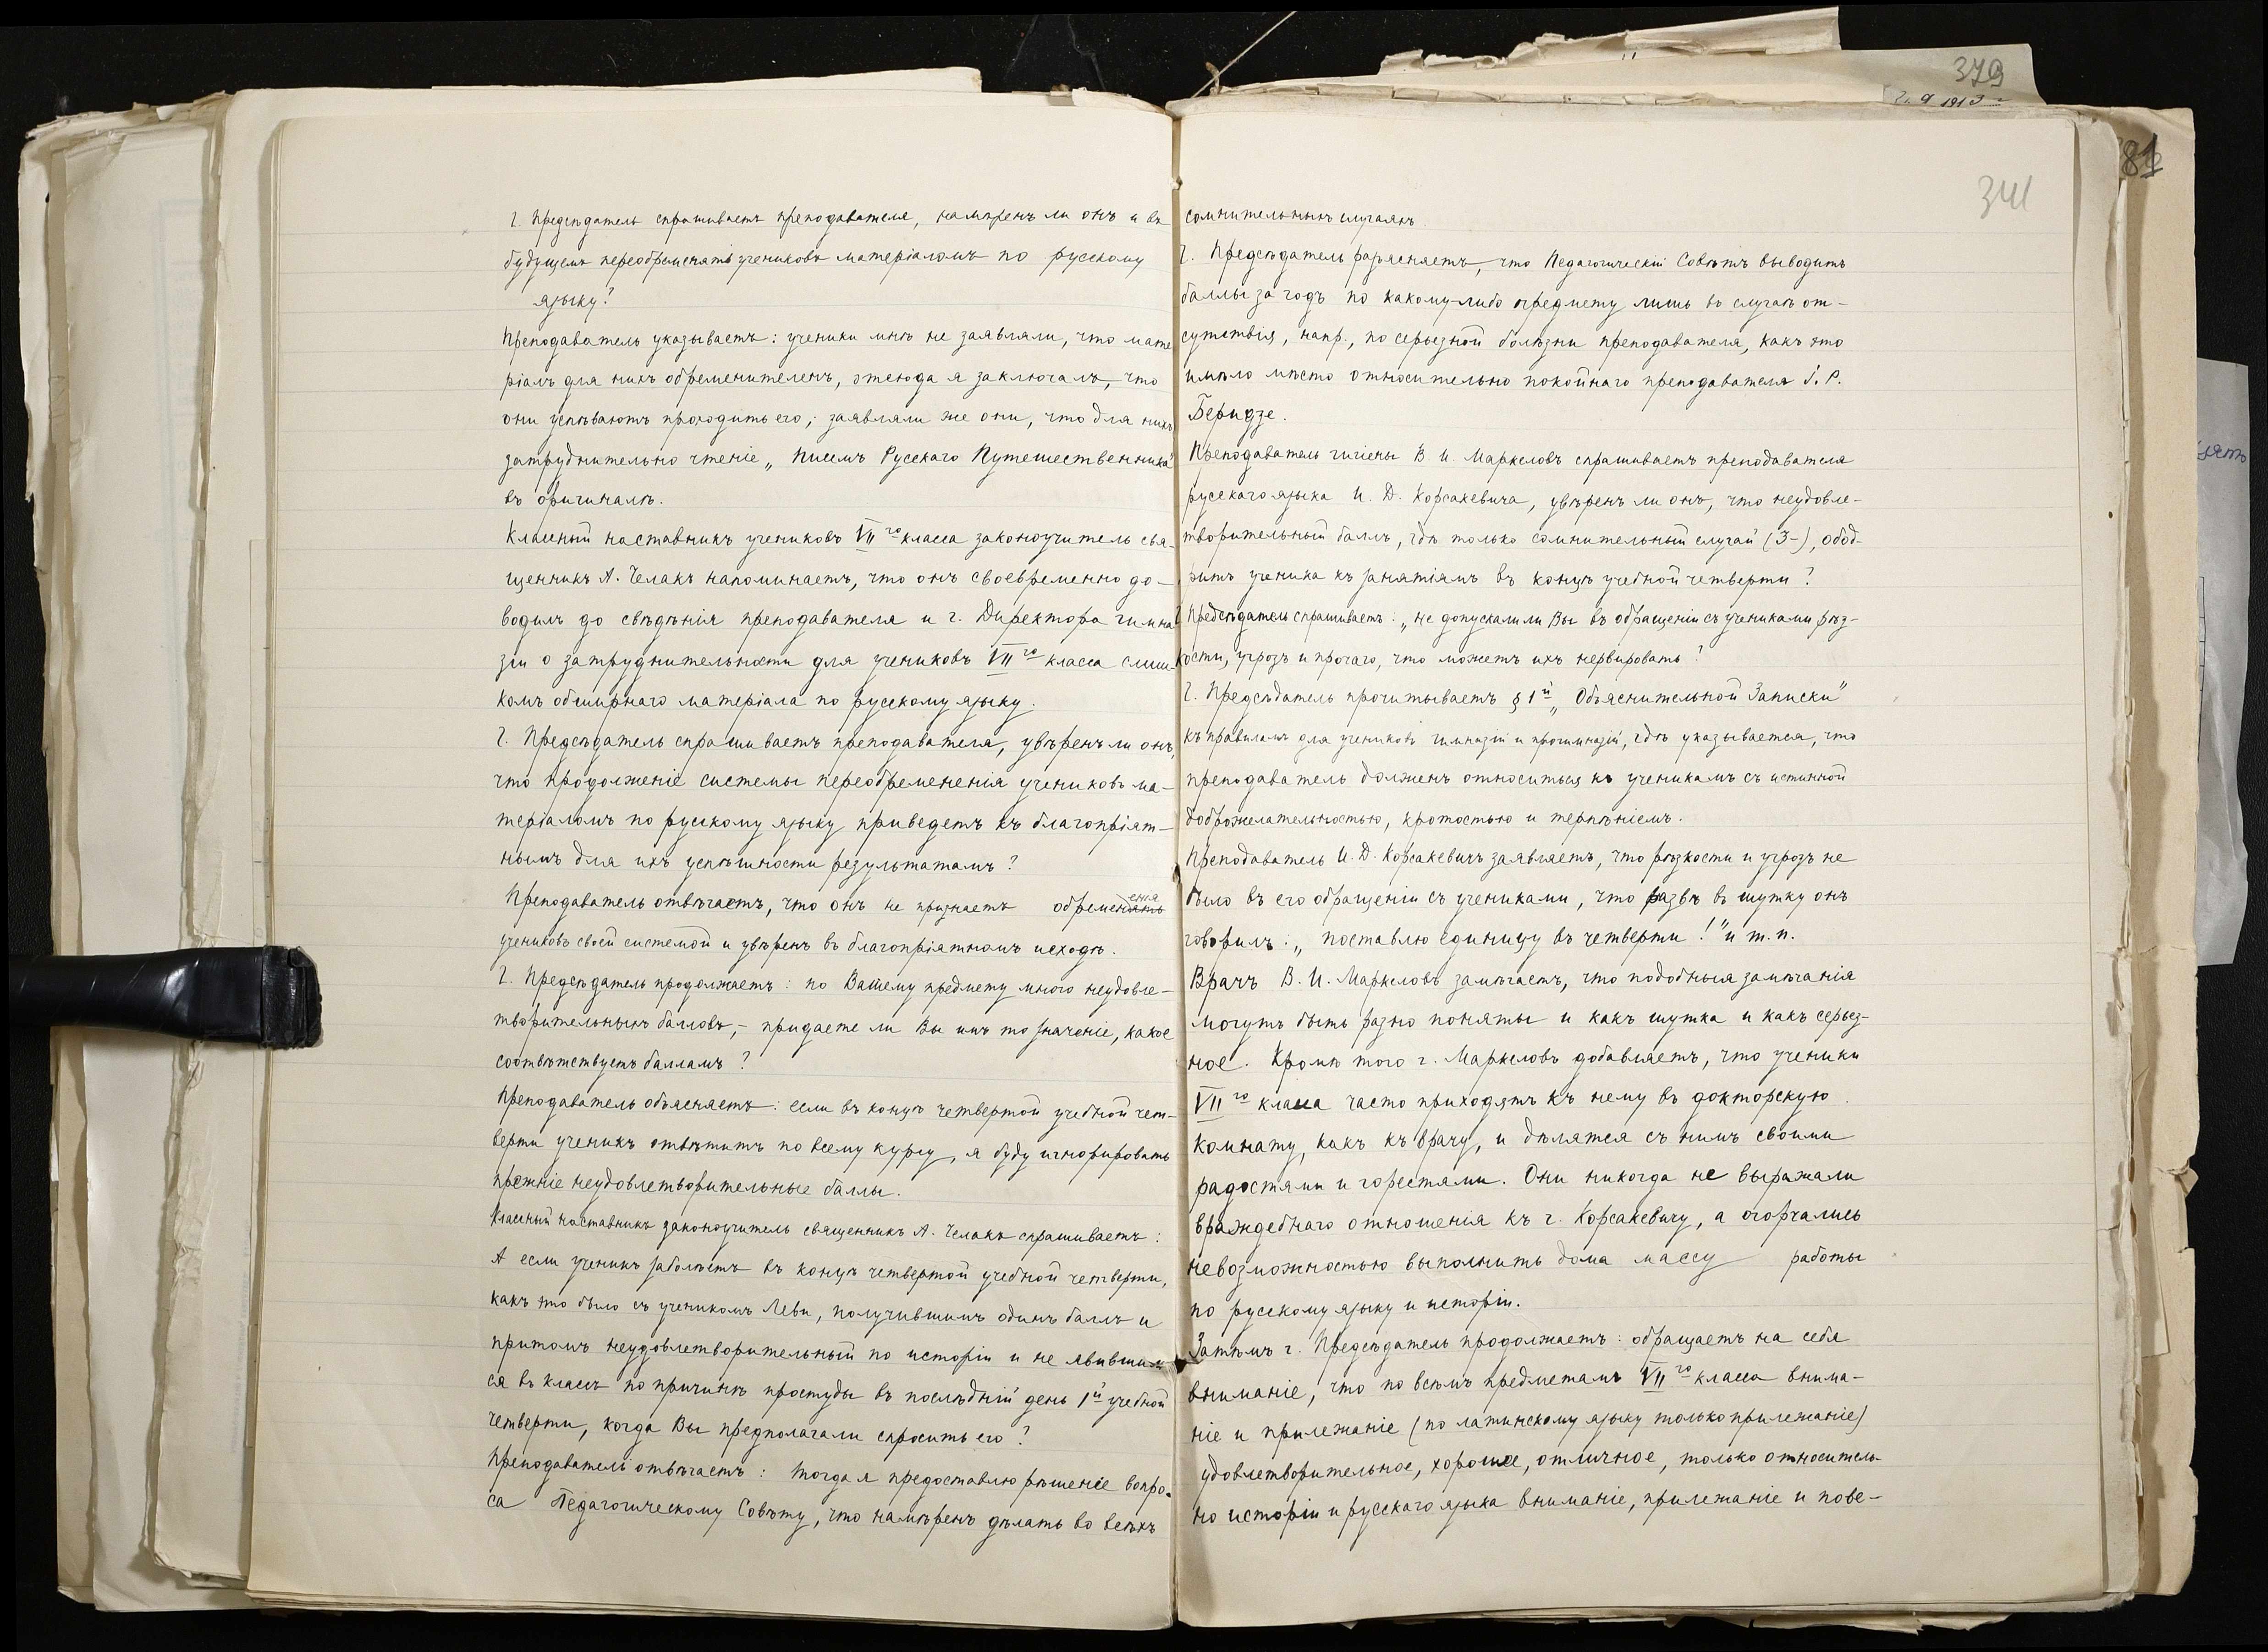 Г. Предсѣдатель спрашиваетъ преподавателя, намѣренъ ли онъ и въ
будущемъ переобременять учениковъ матеріаломъ по русскому
языку?
Преподаватель указываетъ: ученики мнѣ не заявляли, что мате
ріалъ для нихъ обременителенъ, отсюда я заключалъ, что
они успѣваютъ проходить его; заявляли же они, что для нихъ
затруднительно чтеніе „Писемъ Русскаго Путешественника"
въ оригиналѣ.
Классный наставникъ учениковъ VII го класса законоучитель свя-
щенникъ А. Челакъ напоминаетъ, что онъ своевременно до-
водилъ до свѣдѣнія преподавателя и г. Директора гимна
зіи о затруднительности для учениковъ VII го класса слиш-
комъ обширнаго матеріала по русскому языку.
Г. Предсѣдатель спрашиваетъ преподавателя, увѣренъ ли онъ,
что продолженіе системы переобремененія учениковъ ма-
теріаломъ по русскому языку приведетъ къ благопріят-
нымъ для ихъ успѣшности результатамъ?
Преподаватель отвѣчаетъ, что онъ не признаетъ обременения
учениковъ своей системой и увѣренъ въ благопріятномъ исходѣ.
Г. Предсѣдатель продолжаетъ: по Вашему предмету много неудовле-
творительныхъ балловъ, – придаете ли Вы имъ то значеніе, какое
соотвѣтствуетъ балламъ?
Преподаватель объясняетъ: если въ концѣ четвертой учебной чет-
верти ученикъ отвѣтитъ по всему курсу, я буду игнорировать
прежніе неудовлетворительные баллы.
Классный наставникъ законоучитель священникъ А. Челакъ спрашиваетъ:
А если ученикъ заболѣетъ въ концѣ четвертой учебной четверти,
какъ это было съ ученикомъ Леви, получившимъ одинъ баллъ и
притомъ неудовлетворительный по исторіи и не явившим
ся въ классъ по причинѣ простуды въ послѣдній день 1й учебной
четверти, когда Вы предполагали спросить его?
Преподаватель отвѣчаетъ: тогда я предоставлю рѣшеніе вопро-
са Педагогическому Совѣту, что намѣренъ дѣлать во всѣхъ
379
1913
81
341
сомнительныхъ случаяхъ.
Г. Предсѣдатель разъясняетъ, что Педагогическій Совѣтъ выводитъ
баллы за годъ по какому-либо предмету лишь въ случаѣ от-
сутствія, напр., по серьезной болѣзни преподавателя, какъ это
имѣло мѣсто относительно покойнаго преподавателя І. Р.
Беридзе.
Преподаватель гигіены В. И. Маркеловъ спрашиваетъ преподавателя
русскаго языка И. Д. Корсакевича, увѣренъ ли онъ, что неудовле-
творительный баллъ, гдѣ только сомнительный случай (3-), обод-
ритъ ученика къ занятіямъ въ концѣ учебной четверти?
Г. Предсѣдатель спрашиваетъ: „не допускали ли Вы въ обращеніи съ учениками рѣз-
кости, угрозъ и прочаго, что можетъ ихъ нервировать?
Г. Предсѣдатель прочитываетъ § 1й „Объяснительной Записки"
къ правиламъ для учениковъ гимназій и прогимназій, гдѣ указывается, что
преподаватель долженъ относиться къ ученикамъ съ истинной
доброжелательностью, кротостью и терпѣніемъ.
Преподаватель И. Д. Корсакевичъ заявляетъ, что рѣзкости и угрозъ не
было въ его обращеніи съ учениками, что развѣ въ шутку онъ
говорилъ: „поставлю единицу въ четверти!" и т. п.
Врачъ В. И. Маркеловъ замѣчаетъ, что подобныя замѣчанія
могутъ быть разно поняты и какъ шутка и какъ серьез-
ное. Кромѣ того г. Маркеловъ добавляетъ, что ученики
VII го класса часто приходятъ къ нему въ докторскую
комнату, какъ къ врачу, и дѣлятся съ нимъ своими
радостями и горестями. Они никогда не выражали
враждебнаго отношенія къ г. Корсакевичу, а огорчались
невозможностью выполнить дома массу работы
по русскому языку и исторіи.
Затѣмъ г. Предсѣдатель продолжаетъ: обращаетъ на себя
вниманіе, что по всѣмъ предметамъ VII го класса внима-
ніе и прилежаніе (по латинскому языку только прилежаніе)
удовлетворительное, хорошее, отличное, только относитель-
но исторіи и русскаго языка вниманіе, прилежаніе и пове-